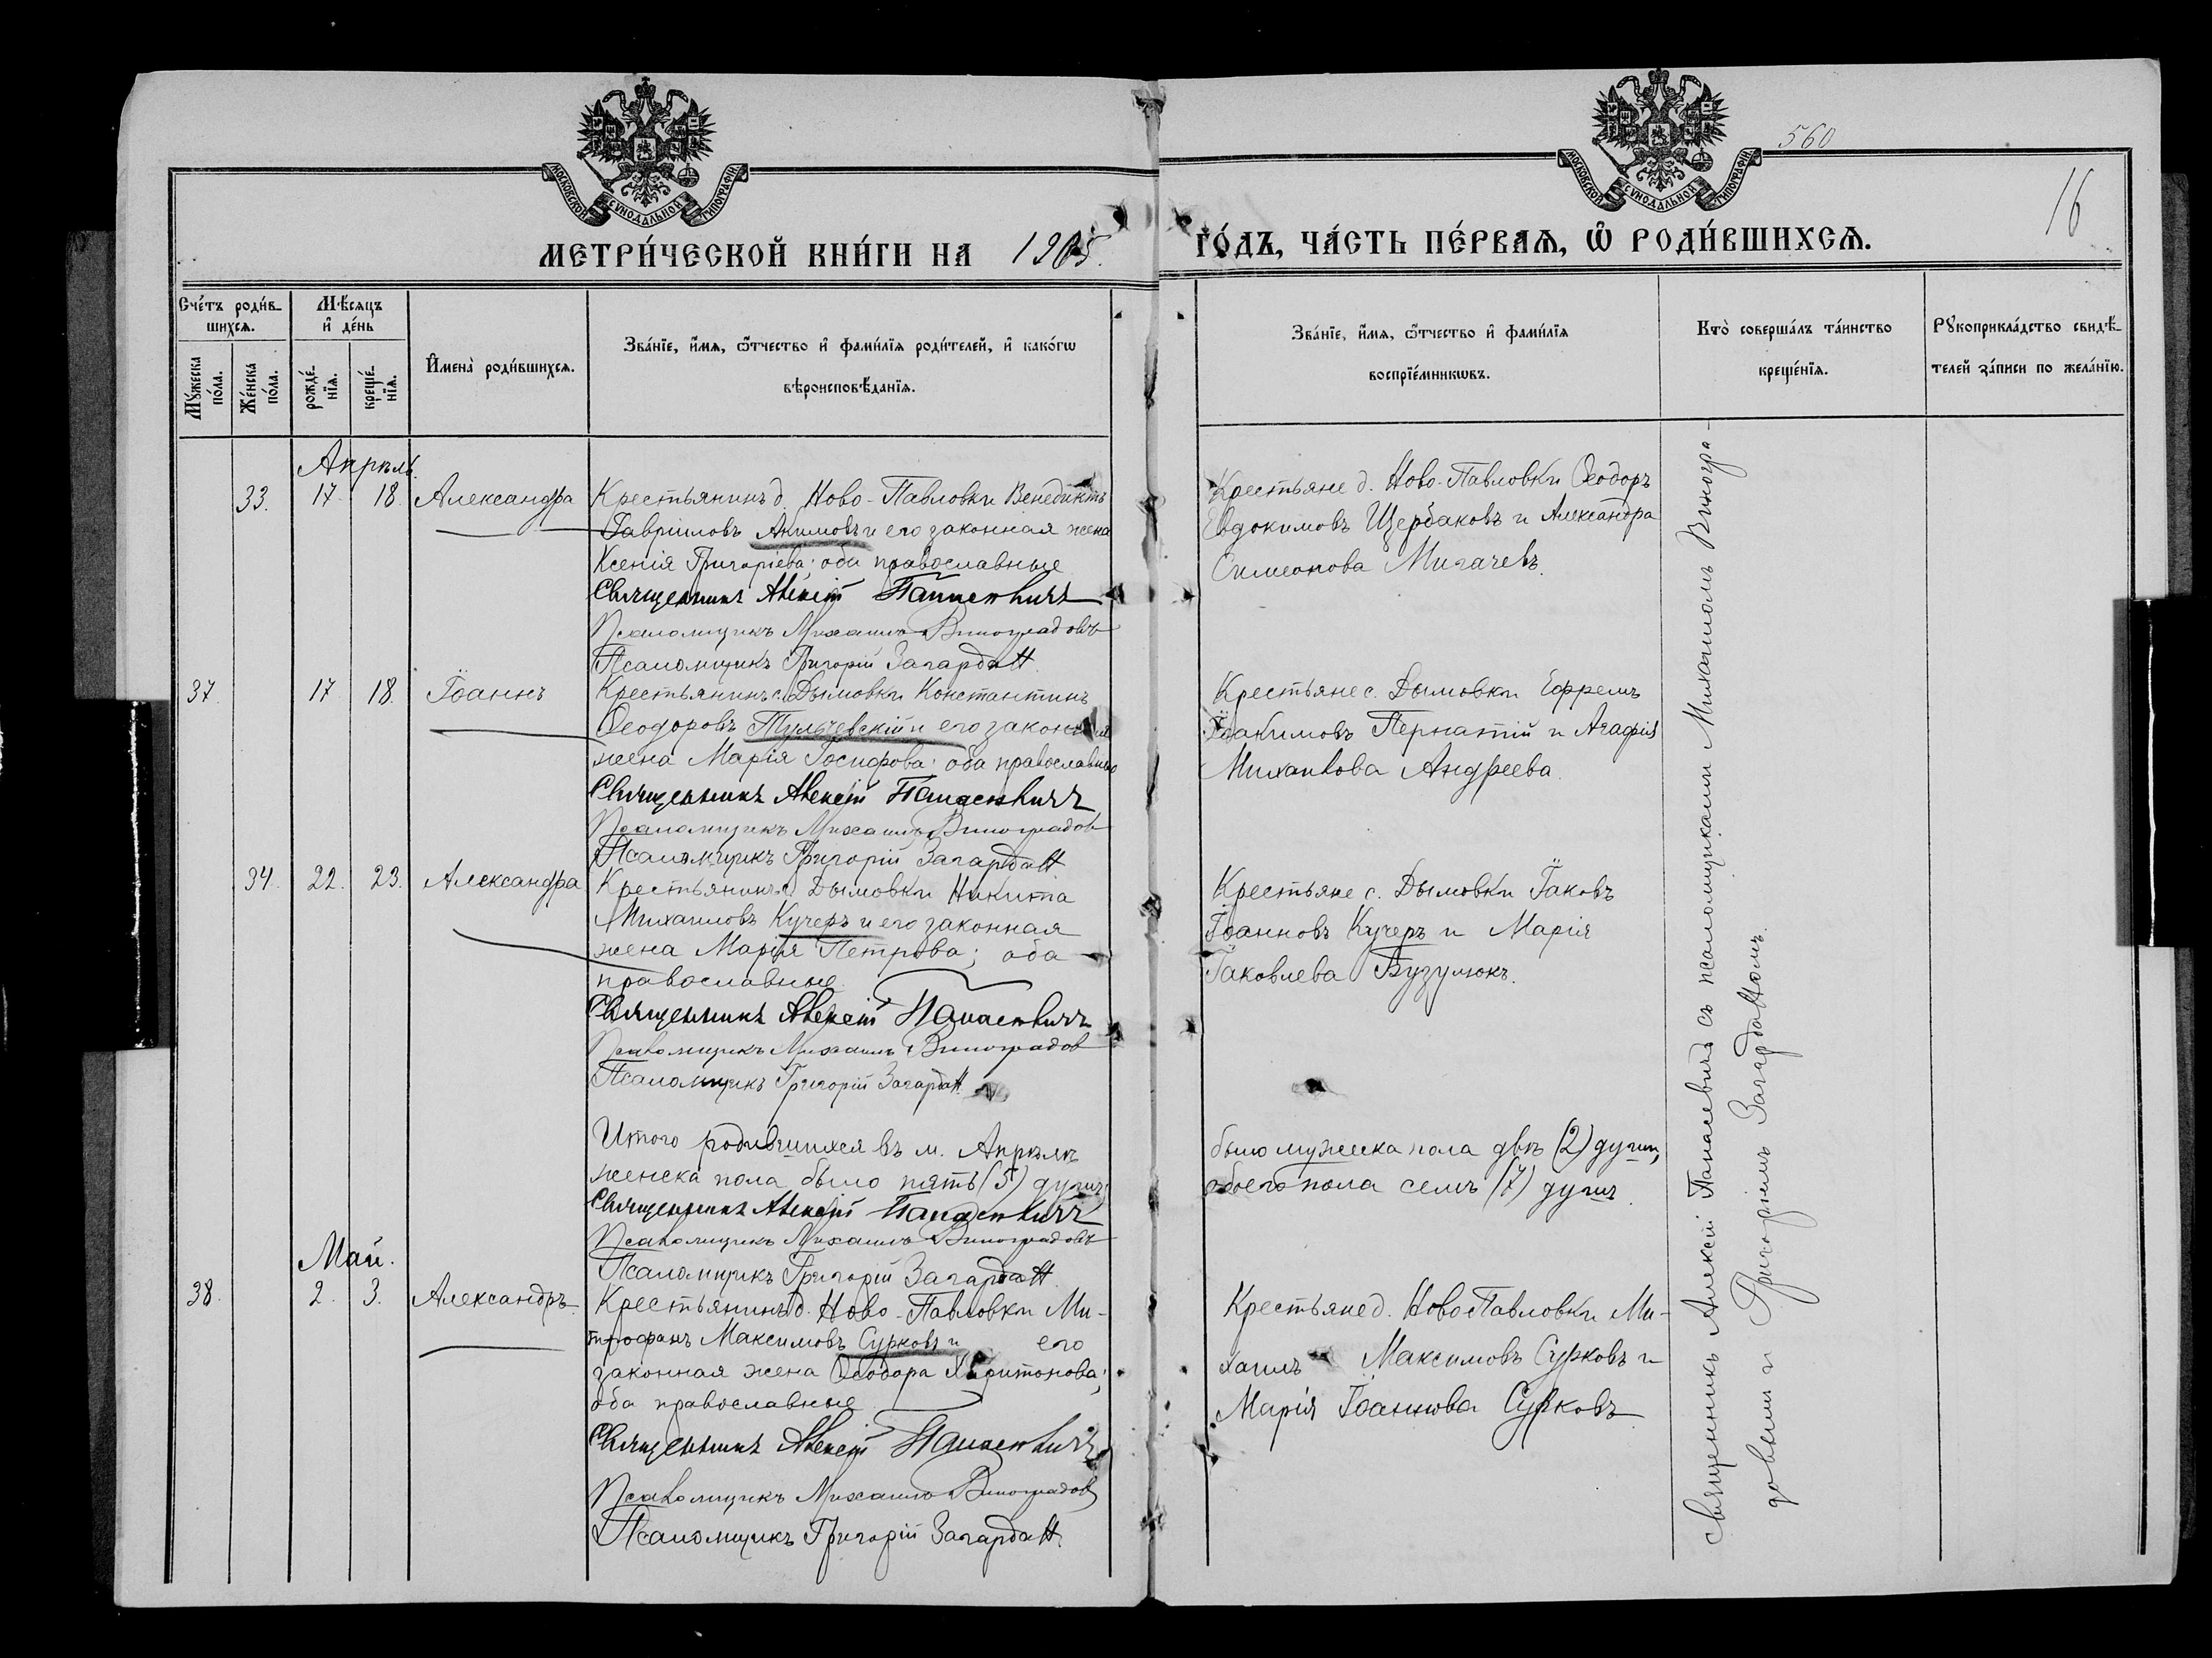 560
16
МОСКОВСКОЙ СѴНОДАЛЬНОЙ ТИПОГРАФІИ
МОСКОВСКОЙ СѴНОДАЛЬНОЙ ТИПОГРАФІИ
МЕТРИ́ЧЕСКОЙ КНИ́ГИ НА 1905.
ГО́ДЪ, ЧА́СТЬ ПЕ́РВАѦ, Ѽ РОДИ́ВШИХСѦ.
Сче́тъ роди́в-
шихсѧ.
Мꙋ́жеска
по́ла.
Же́нска
по́ла.
Мѣ́сѧцъ
и҆ де́нь
рожде́-
нїѧ.
креще́-
нїѧ.
И҆мена̀ роди́вшихсѧ.
Зва́нїе, и҆́мѧ, ѻ҆́тчество и҆ фами́лїѧ роди́телей, и҆ како́гѡ
вѣроисповѣ́данїѧ.
Зва́нїе, и҆́мѧ, ѻ҆́тчество и҆ фами́лїѧ
воспрїе́мникѡвъ.
Кто̀ соверша́лъ та́инство
креще́нїѧ.
Рꙋкоприкла́дство свидѣ́-
телей за́писи по жела́нїю.
Апрѣль
33. 17 18 Александра
Крестьянинъ д. Ново-Павловки Венедиктъ
Гавріиловъ Акимовъ и его законная жена
Ксенія Григоріева; оба православные
Священникъ Алексій Панасевичъ
Псаломщикъ Михаилъ Виноградовъ
Псаломщикъ Григорій Загардан
Крестьяне д. Ново-Павловки Ѳеодоръ
Евдокимовъ Щербаковъ и Александра
Симеонова Мигачевъ.
37. 17 18. Іоаннъ
Крестьянинъ с. Дымовки Константинъ
Ѳеодоровъ Тульчевскій и его законная
жена Марія Іосифова; оба православные
Священникъ Алексій Панасевичъ
Псаломщикъ Михаилъ Виноградов
Псаломщикъ Григорій Загардан
Крестьяне с. Дымовки Ефремъ
Іоакимовъ Пернатій и Агафія
Михаилова Андреева.
34. 22. 23. Александра
Крестьянинъ с. Дымовки Никита
Михаиловъ Кучеръ и его законная
жена Марія Петрова; оба
православные.
Священникъ Алексій Панасевичъ
Псаломщикъ Михаилъ Виноградов
Псаломщикъ Григорій Загардан
Крестьяне с. Дымовки Іаковъ
Іоанновъ Кучеръ и Марія
Іаковлева Бузулюкъ.
Итого родившихся въ м. Апрѣлѣ
женска пола было пять (5) душъ,
Священникъ Алексій Панасевичъ
Псаломщикъ Михаилъ Виноградовъ
Псаломщикъ Григорій Загардан
было мужеска пола двѣ (2) души,
обоего пола семь (7) душъ.
Май.
38. 2. 3. Александръ
Крестьянинъ д. Ново-Павловки Ми-
трофанъ Максимовъ Сурковъ и его
законная жена Ѳеодора Харитонова;
оба православные
Священникъ Алексій Панасевичъ
Псаломщикъ Михаилъ Виноградов
Псаломщикъ Григорій Загардан
Крестьяне д. Ново Павловки Ми-
хаилъ Максимовъ Сурковъ и
Марія Іоаннова Сурковъ
Священникъ Алексій Панасевичъ съ псаломщиками Михаиломъ Виногра-
довымъ и Григоріемъ Загарданомъ.